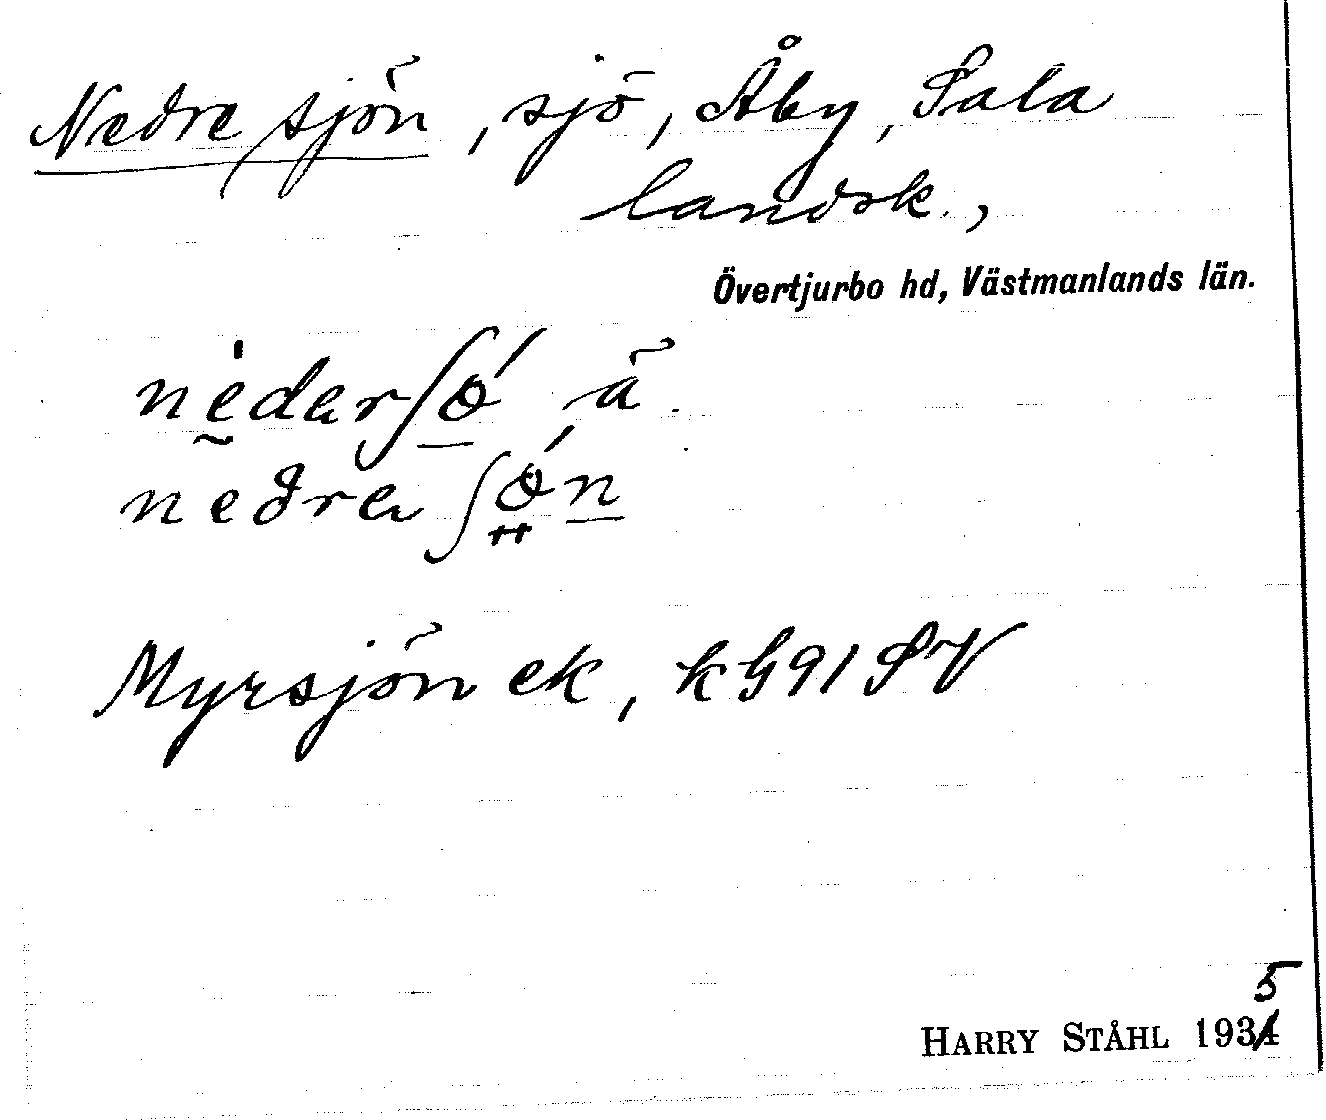 Nedre sjön, sjö, Åby, Sala
landsk.,
Övertjurbo hd, Västmanlands län.
nedərʃö́ ä.
nedrə ʃö́n
Myrsjön ek, kG91SV
5
HARRY STÅHL 1934